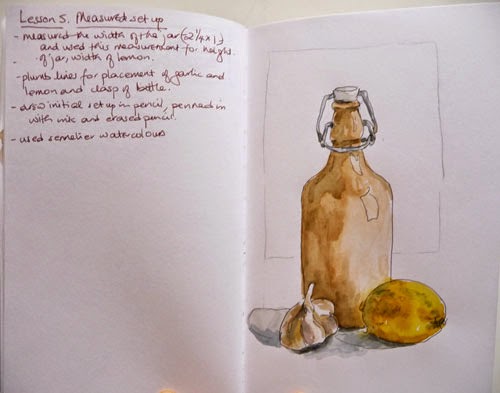 Lesson 5. Measured set up
- measured the width of the jar (2 1/4 x
and used this measurement for height
- of jar, width of lemon.
- plumb lines for placement of garlic and
lemon and clasp of bottle.
- draw initial set up in pencil, penned in
with ink and erased pencil.
- used sennelier watercolours